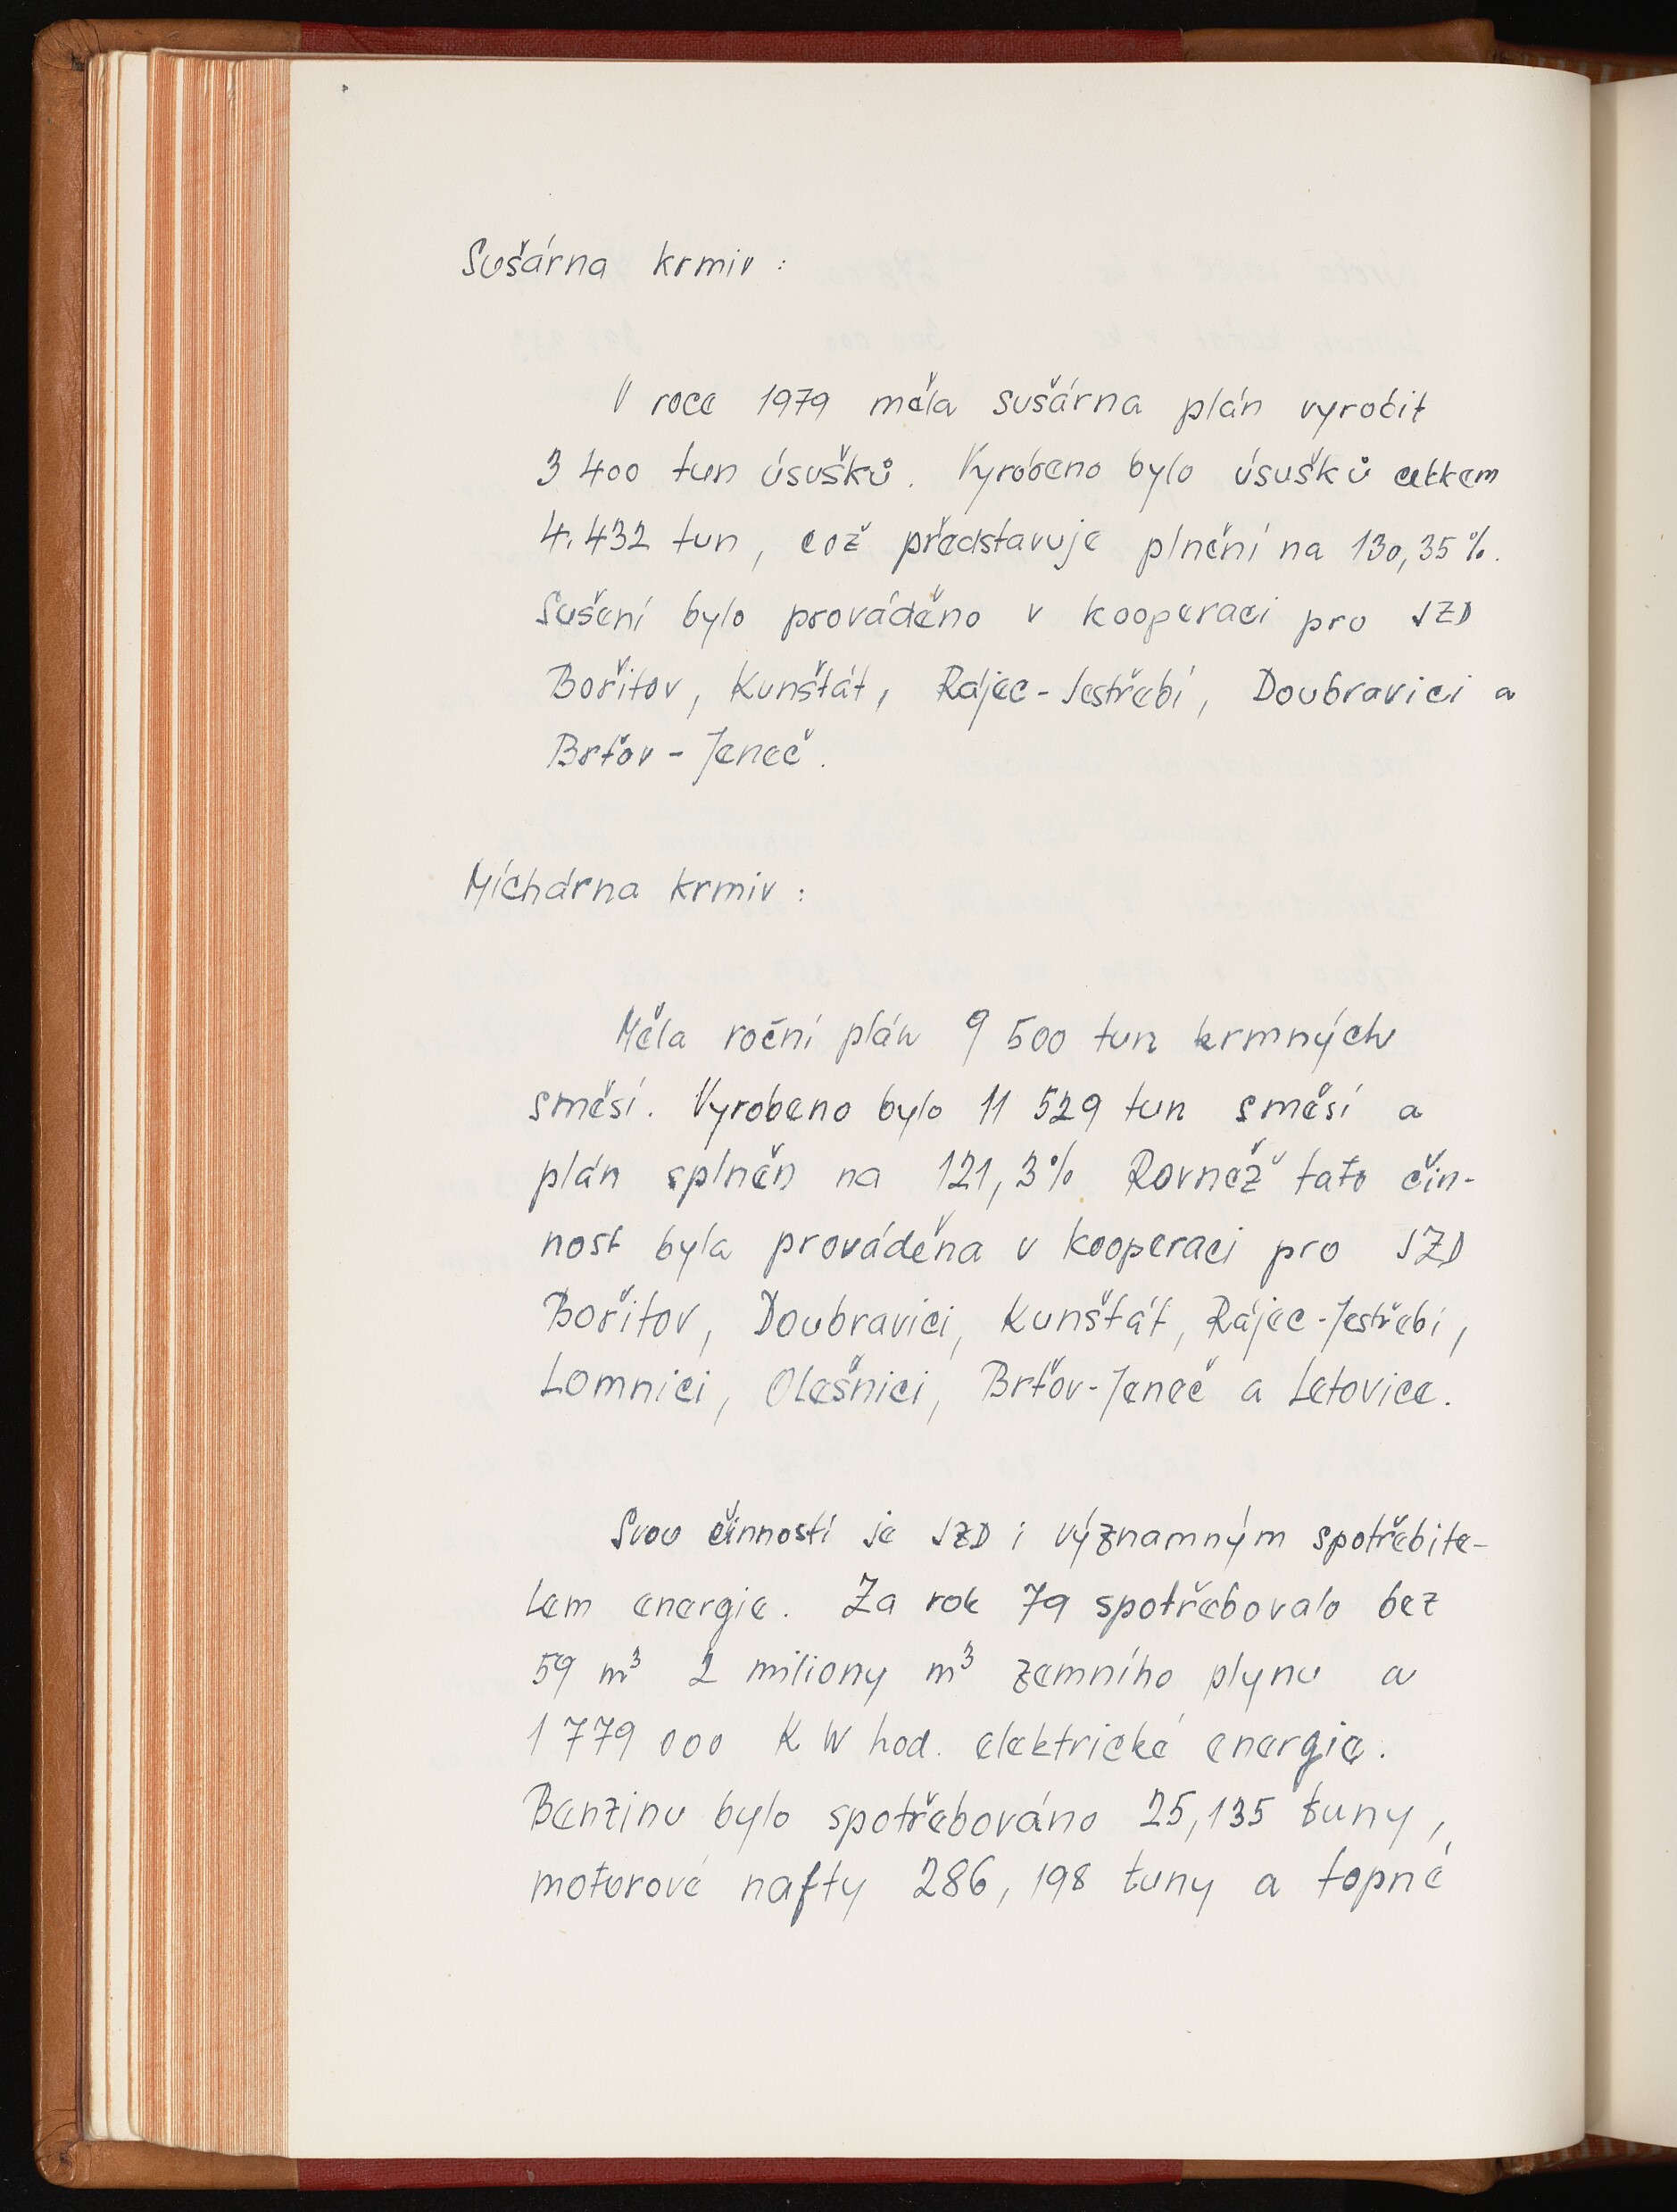 Sušárna krmiv :
V roce 1979 měla sušárna plán vyrobit
3 400 tun úsušků. Vyrobeno bylo úsušků celkem
4.432 tun, což představuje plnění na 130,35 %.
Sušení bylo prováděno v kooperaci pro JZD
Bořitov, Kunštát, Rájec-Jestřebí, Doubravici a
Brťov - Jeneč.
Míchárna krmiv :
Měla roční plán 9 500 tun krmných
směsí. Vyrobeno bylo 11 529 tun směsí a
plán splněn na 121,3% Rovněž tato čin-
nost byla prováděna v kooperaci pro JZD
Bořitov, Doubravici, Kunštát, Rájec-Jestřebí,
Lomnici, Olešnici, Brťov-Jeneč a Letovice.
Svou činností je JZD i významným spotřebite-
lem energie. Za rok 79 spotřebovalo bez
59 m³ 2 miliony m³ zemního plynu a
1 779 000 KW hod. elektrické energie.
Benzinu bylo spotřebováno 25,135 tuny,
motorové nafty 286,198 tuny a topné